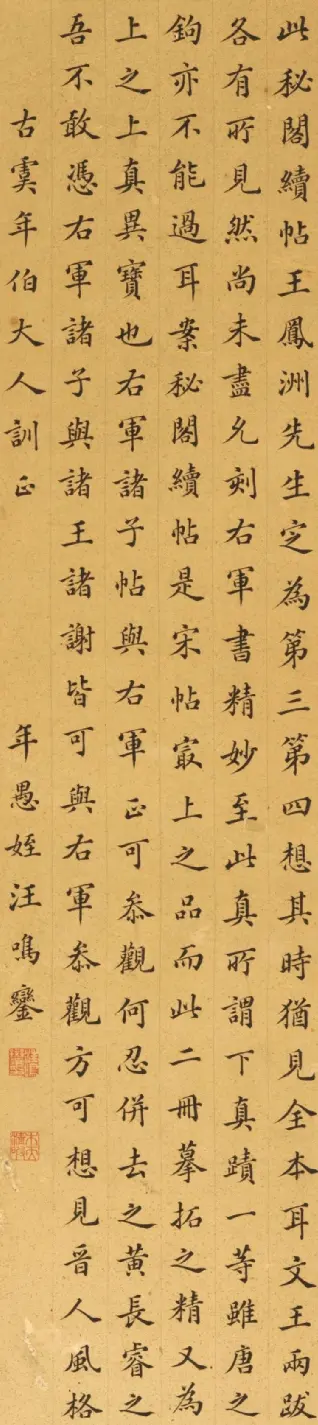 此秘閣續帖王鳳洲先生定為第三第四想其時猶見全本耳文王兩跋
各有所見然尚未盡允刻右軍書精妙至此真所謂下真蹟一等雖唐之
鉤亦不能過耳案秘閣續帖是宋帖冣上之品而此二冊摹拓之精又為
上之上真異寶也右軍諸子帖與右軍正可叅觀何忍併去之黃長睿之
吾不敢憑右軍諸子與諸王諸謝皆可與右軍叅觀方可想見晋人風格
古虞年伯大人訓正
年愚姪汪鳴鑾